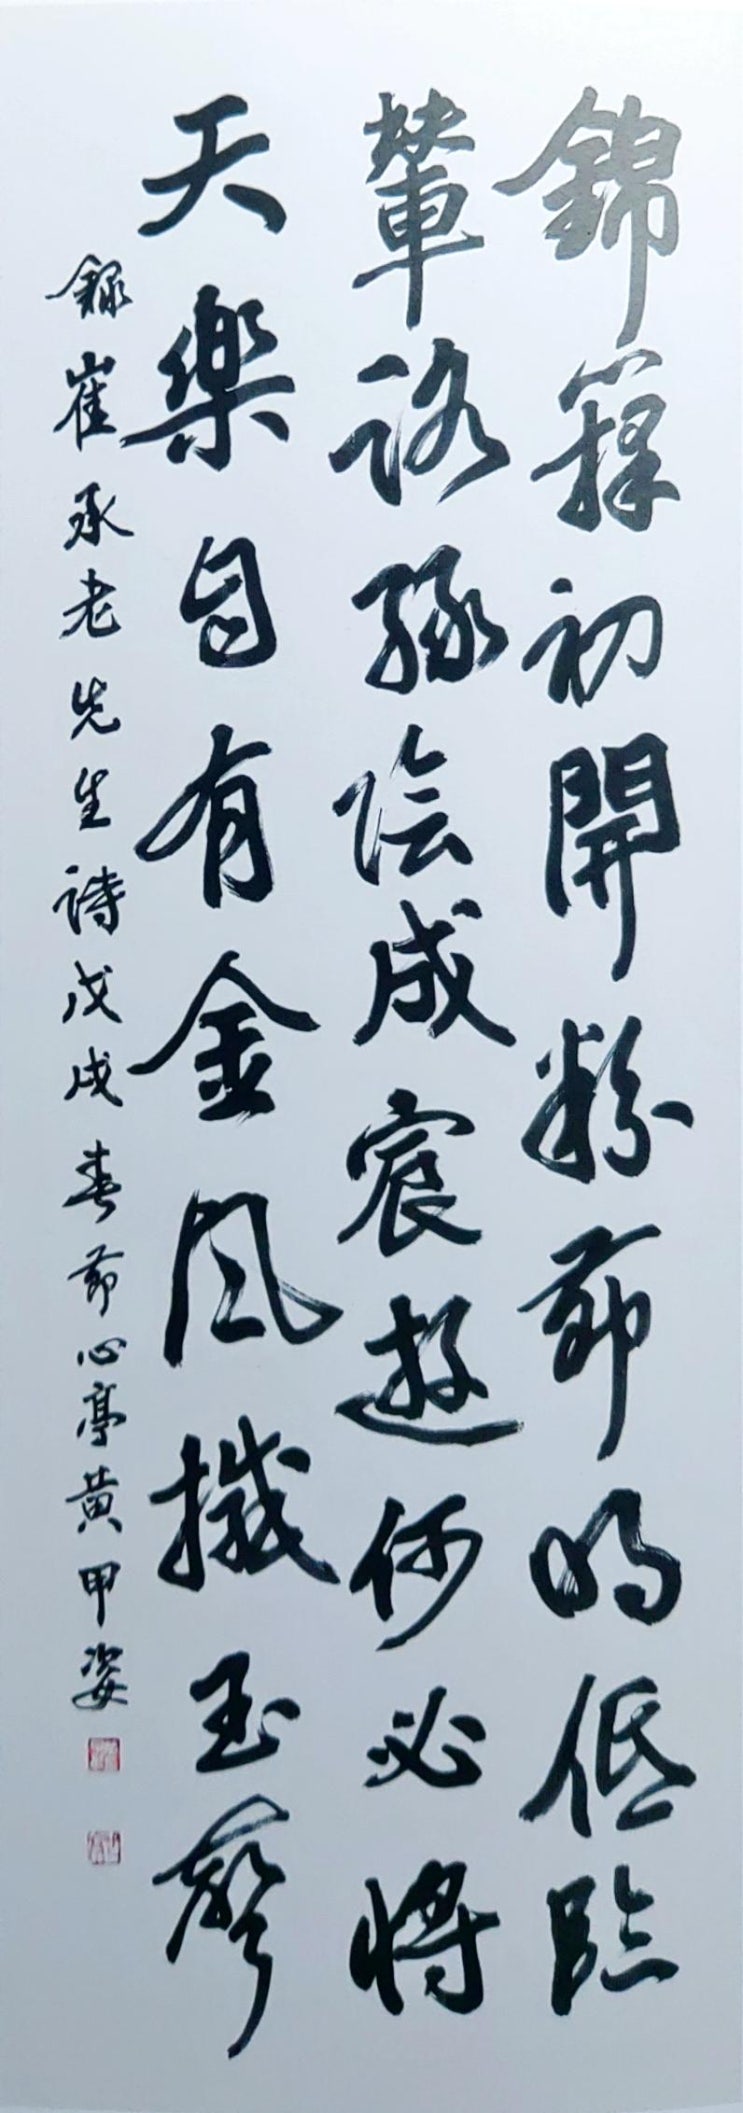 錦籜初開粉節明低臨
輦路綠陰成宸遊何必將
天樂自有金風摵玉聲
錄崔承老先生詩戊戌春節心亭黃甲姿